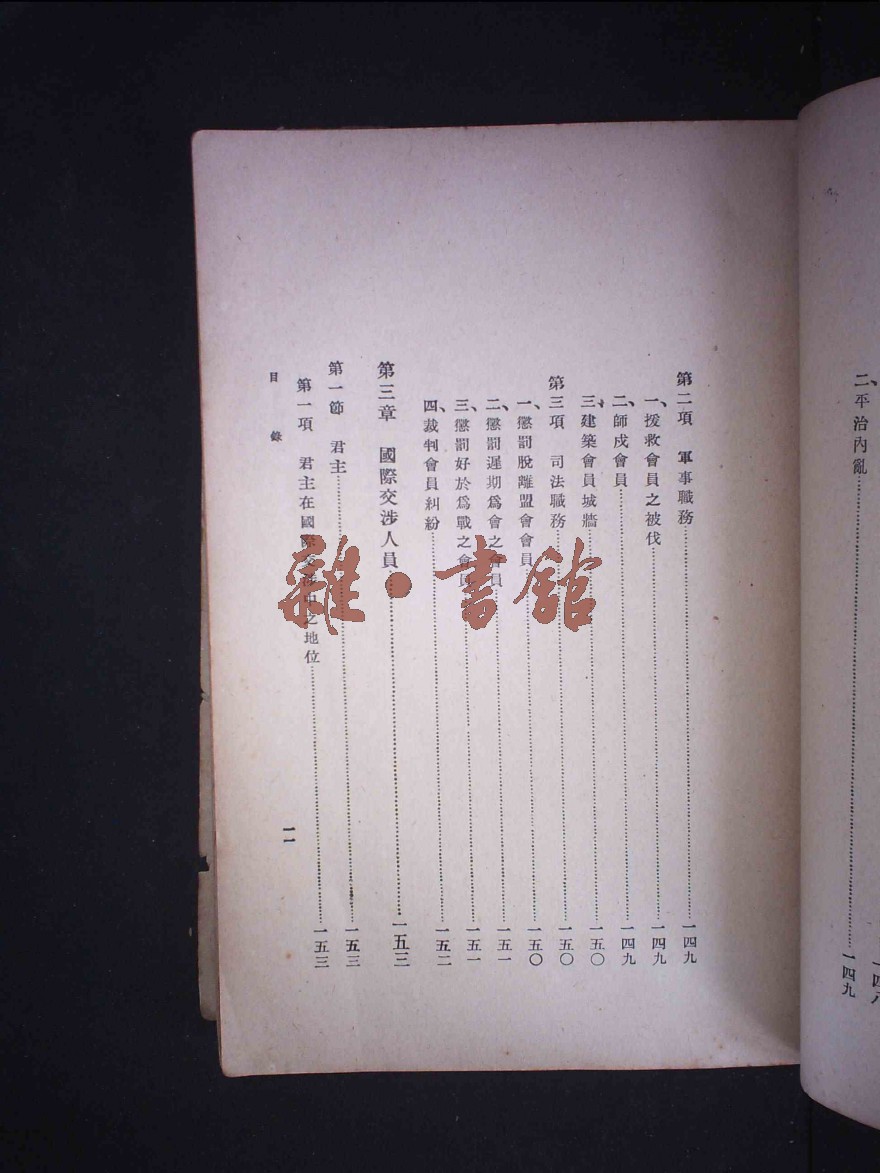 一四八
二、平治內亂……一四九
第二項　軍事職務……一四九
一、援救會員之被伐……一四九
二、師戍會員……一四九
三、建築會員城牆……一五〇
第三項　司法職務……一五〇
一、懲罰脫離盟會會員……一五〇
二、懲罰遲期爲會之會員……一五一
三、懲罰好於爲戰之會員……一五一
四、裁判會員糾紛……一五二
第三章　國際交涉人員……一五三
第一節　君主……一五三
第一項　君主在國際交涉中之地位……一五三
目　錄
一一
雜·書館